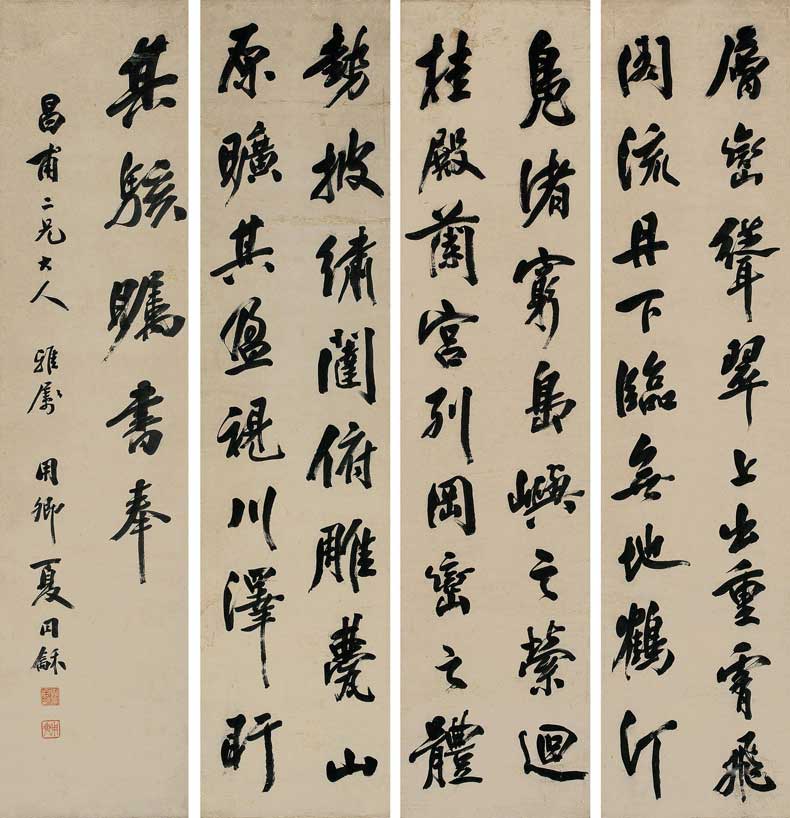 層巒聳翠上出重霄飛
閣流丹下臨無地鶴汀
鳧渚窮島嶼之縈迴
桂殿蘭宮列岡巒之體
勢披繡闥俯雕甍山
原曠其盈視川澤盱
其駭矚書奉
昌甫二兄大人 雅屬 用卿夏同龢